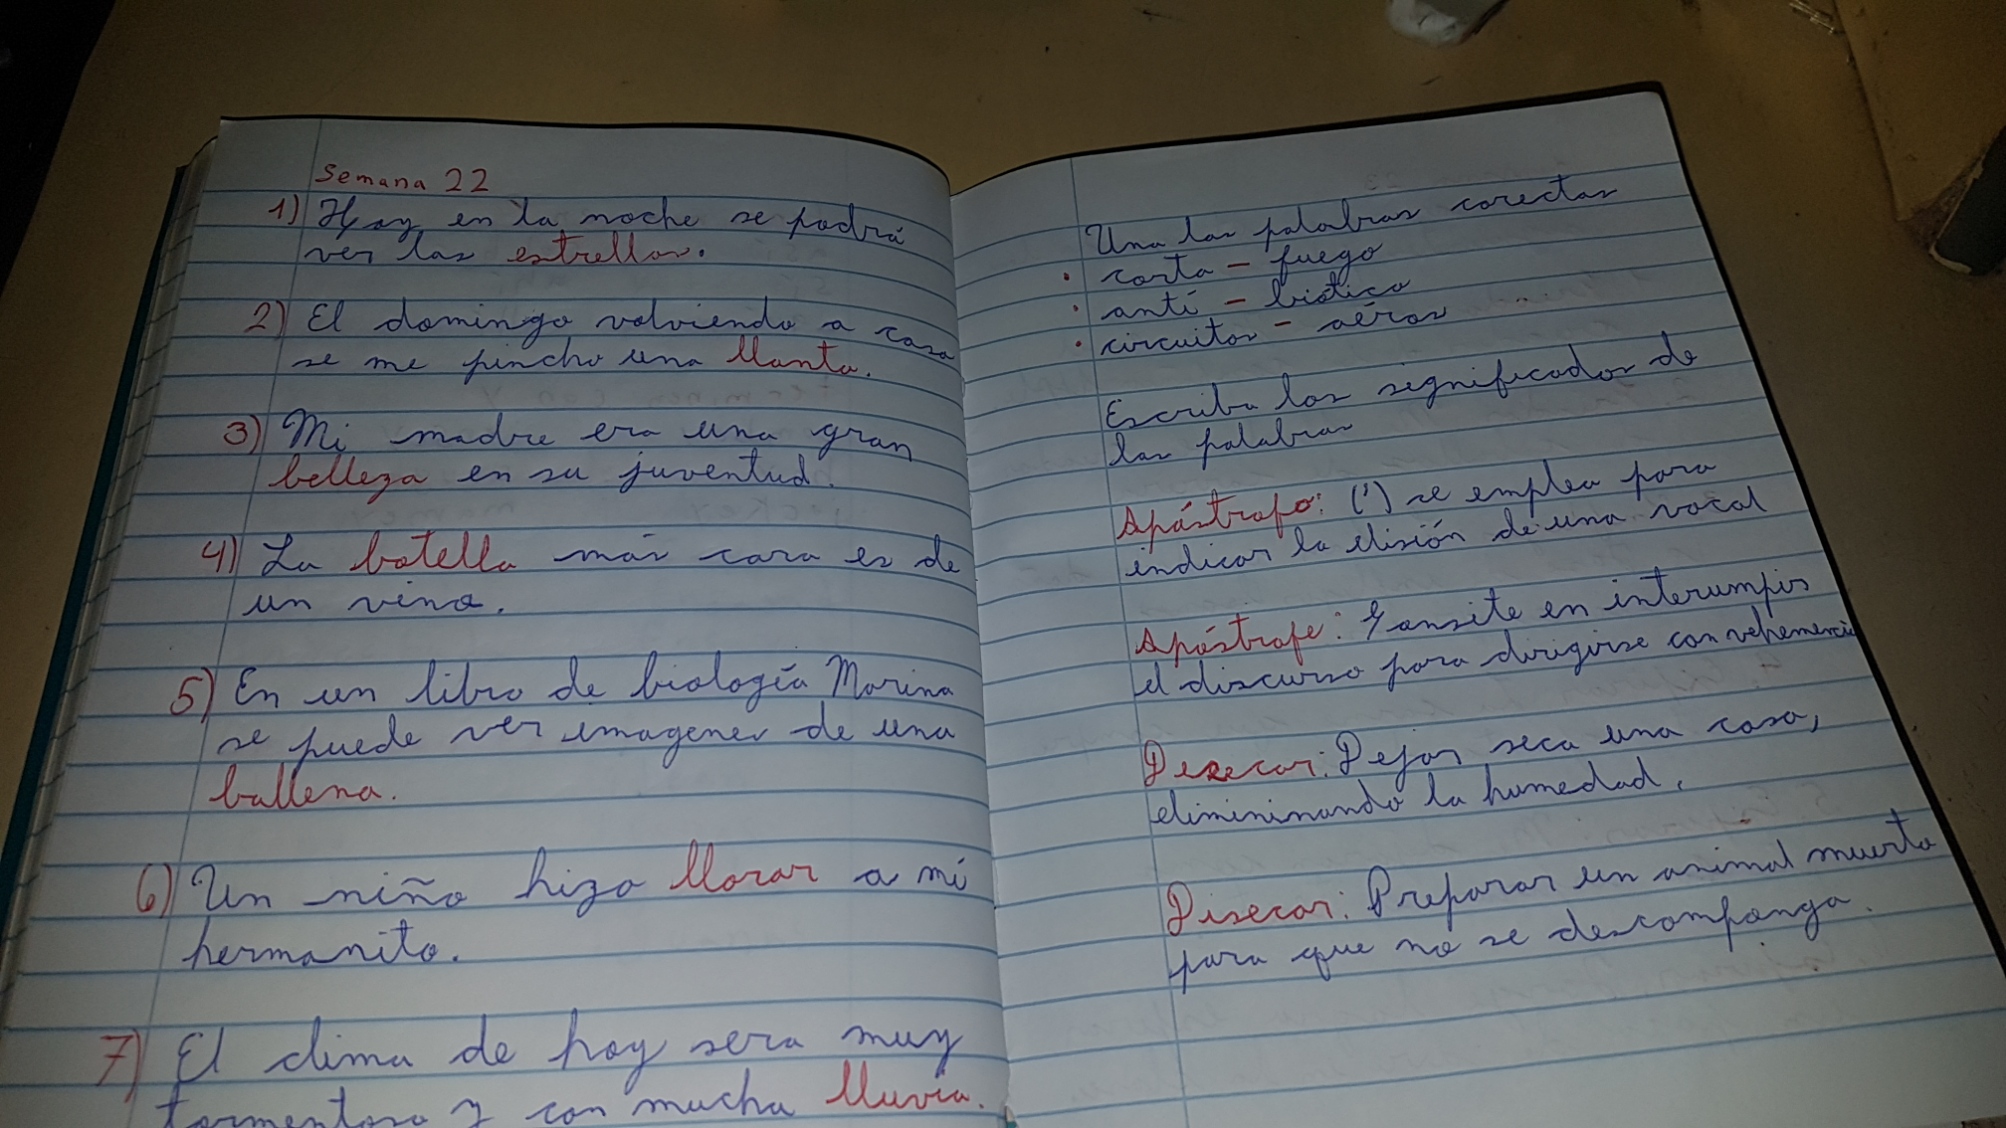 Semana 22
1) Hoy en la noche se podrá
ver las estrellas.
2) El domingo volviendo a casa
se me pincho una llanta.
3) Mi madre era una gran
belleza en su juventud.
4) La botella más cara es de
un vino.
5) En un libro de biología Marina
se puede ver imagenes de una
ballena.
6) Un niño hizo llorar a mi
hermanito.
7) El clima de hoy sera muy
tormentoso y con mucha lluvia.
Una las palabras corectas
• corta - fuego
• anti - biótico
• circuitos - aéros
Escriba los significados de
las palabras
Apóstrofo: (') se emplea para
indicar la elisión de una vocal
Apóstrofe: en interumpir
el discurso para dirigirse con vehemencia
Desecar: Dejar seca una cosa,
elimininando la humedad.
Disecar: Preparar un animal muerto
para que no se descomponga.